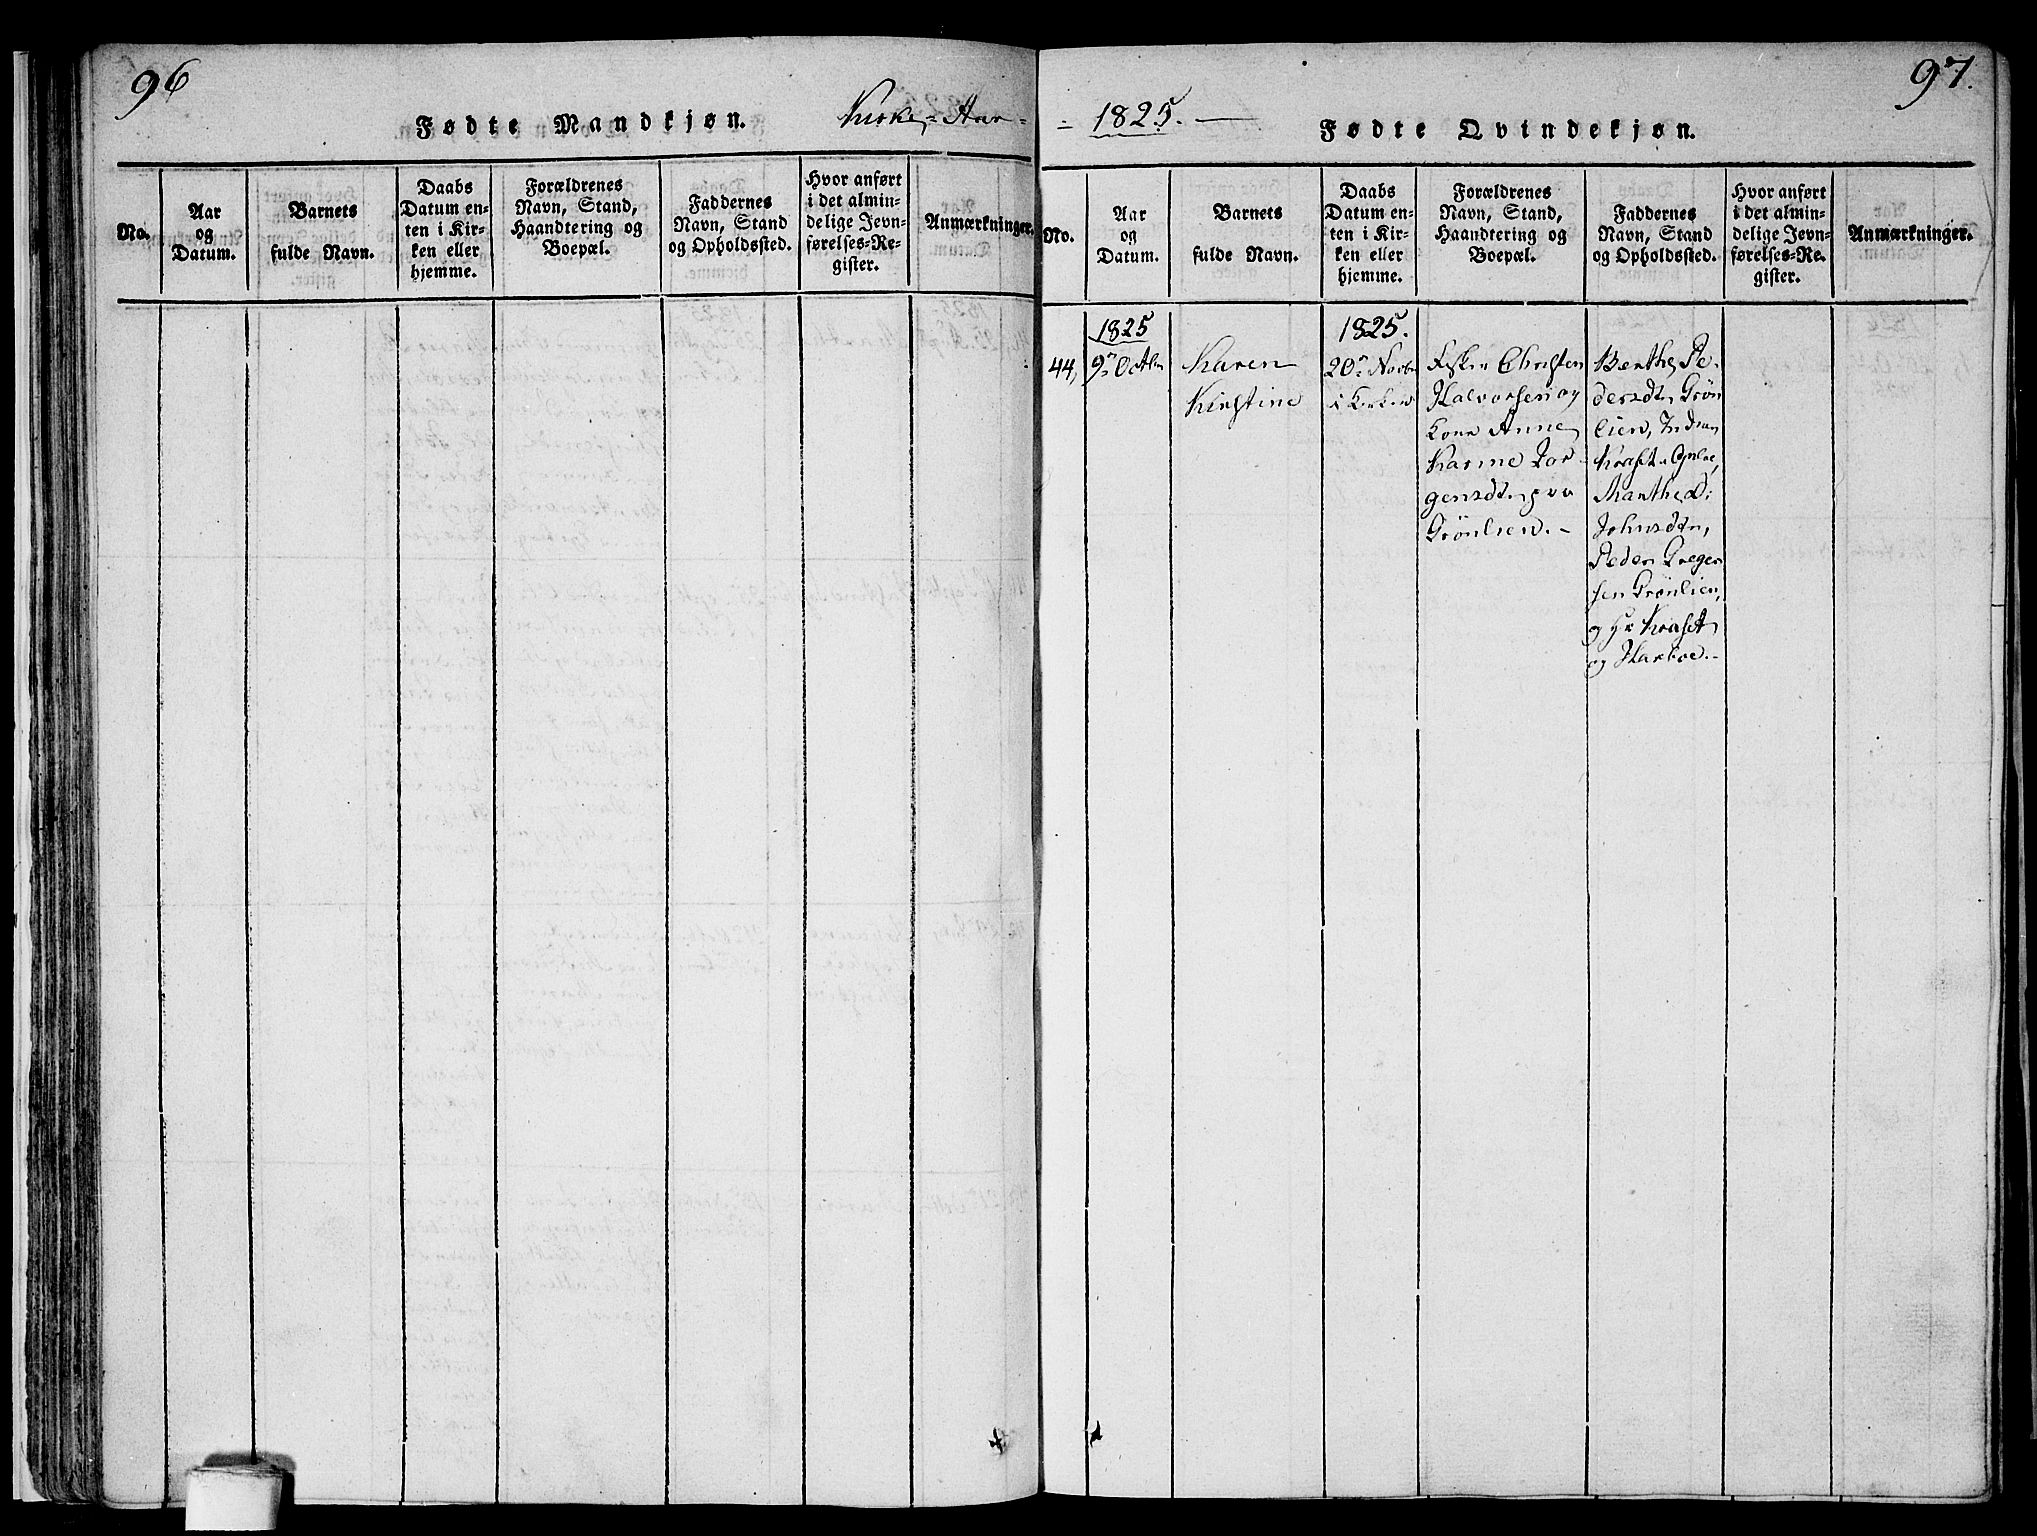 96
Fødte Mandkjøn.
Kirke-Aar-
No.
Aar
og
Datum.
Barnets
fulde Navn.
Daabs
Datum en-
ten i Kir-
ken eller
hjemme.
Forældrenes
Navn, Stand,
Haandtering og
Boepæl.
Faddernes
Navn, Stand
og Opholdssted.
Hvor anført
i det almin-
delige Jevn-
førelses-Re-
gister.
Anmærkninger.
97.
- 1825. -
Fødte Qvindekjøn.
No.
Aar
og
Datum.
Barnets
fulde Navn.
Daabs
Datum en-
ten i Kir-
ken eller
hjemme.
Forældrenes
Navn, Stand,
Haandtering og
Boepæl.
Faddernes
Navn, Stand
og Opholdssted.
Hvor anført
i det almin-
delige Jevn-
førelses-Re-
gister.
Anmærkninger.
44,
1825
9de Octbr
Karen
Kirstine
1825.
20de Novbr
i Kirken
Fisker Christen
Halvorsen og
Kone Anne
Karine Jør-
gensdtr paa
Grönlien.-
Berthe Pe-
dersdtr Grön
lien,
Marthe
Johnsdtr,
Peder Greger
sen Grönlien,
og Hr Kraft
og Harboe.-